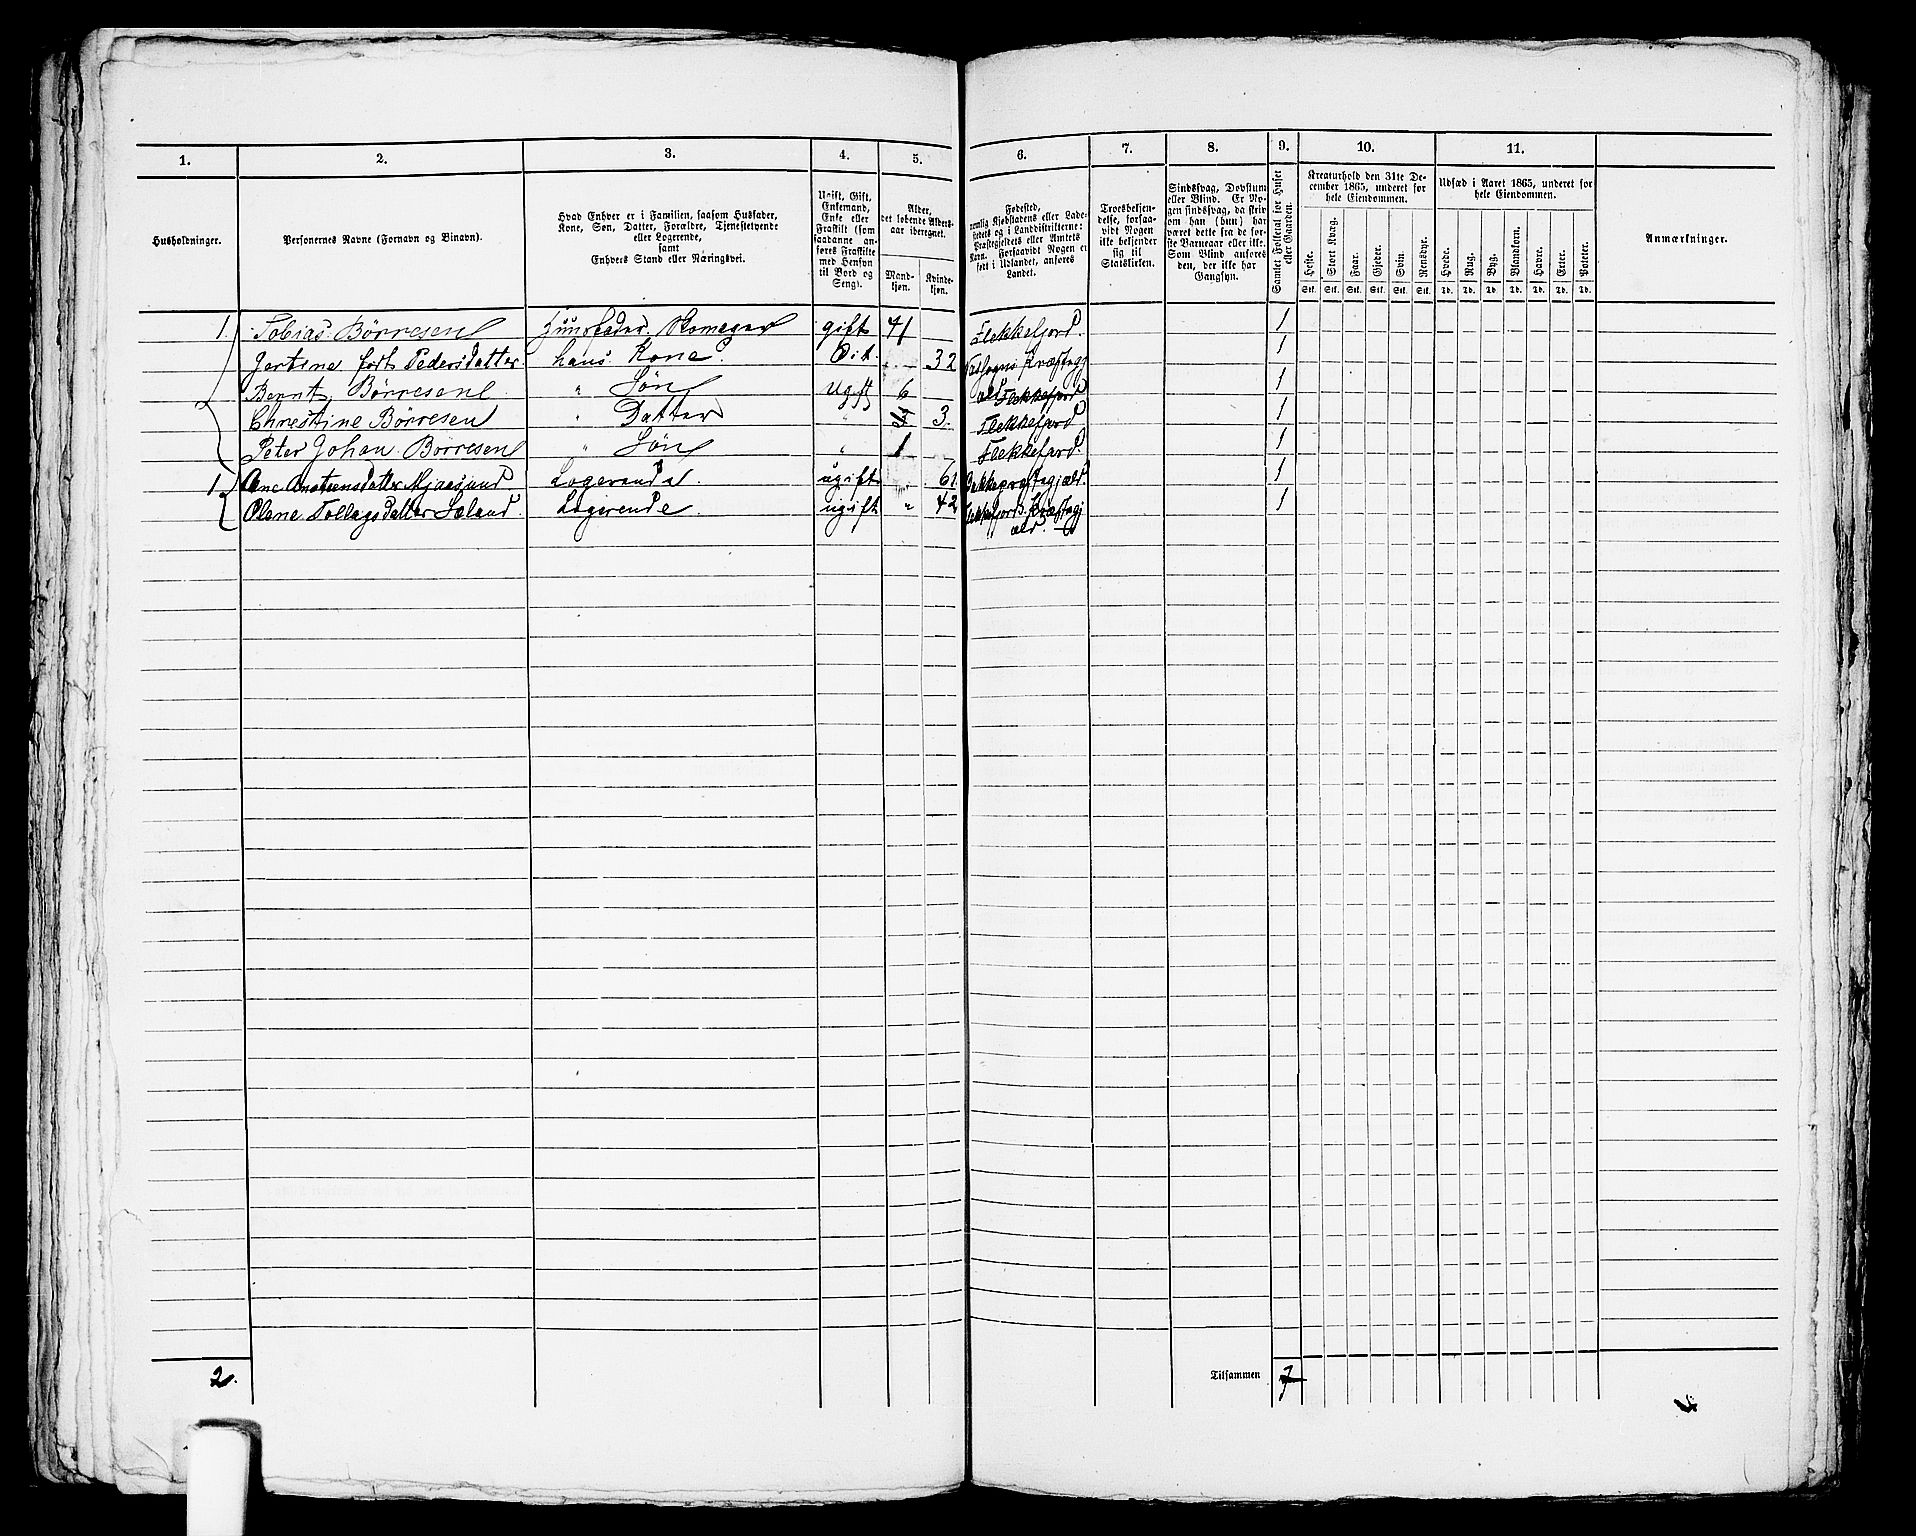 1. 2. 3. 4. 5. 6. 7. 8. 9. 10. 11.
Husholdninger.
Personernes Navne (Fornavn og Binavn).
Hvad Enhver er i Familien, saasom Husfader,
Kone, Søn, Datter, Forældre, Tjenestetyende
eller Logerende,
samt
Enhvers Stand eller Næringsvei.
Ugift, Gift,
Enkemand,
Enke eller
Fraskilt (som
saadanne an-
føres Fraskilte
med Hensyn
til Bord og
Seng).
Alder,
det løbende Alders-
aar iberegnet.
Mand-
kjøn.
Kvinde-
kjøn.
Fødested,
nemlig Kjøbstadens eller Lade-
stedets og i Landdistrikterne:
Præstegjeldets eller Amtets
Navn. Forsaavidt Nogen er
født i Udlandet, anføres
Landet.
Troesbekjen-
delse, forsaa-
vidt Nogen
ikke bekjender
sig til
Statskirken.
Sindssvag, Døvstum
eller Blind. Er No-
gen sindssvag, da skriv
om han (hun) har
været dette fra de før-
ste Barneaar eller ikke.
Som Blind anføres
den, der ikke har
Gangsyn.
Samlet Folketal for Huset
eller Gaarden.
Kreaturhold den 31te De-
cember 1865, underet for
hele Eiendommen.
Heste. Stort Kvæg. Faar. Gjeder. Svin. Rensdyr.
Stk. Stk. Stk. Stk. Stk. Stk.
Udsæd i Aaret 1865, underet for
hele Eiendommen.
Hvede. Rug. Byg. Blandkorn. Havre. Erter. Poteter.
Td. Td. Td. Td. Td. Td. Td.
Anmærkninger.
1. Tobias Børresen Huusfader. Skomager gift 41 Flekkefjord. 1
Jertine født Pedersdatter. hans Kone. Dit. 32 Præstegj 1
Bernt Børresen " Søn Ugift 6 æld Flekkefjord 1
Chrestine Børresen " Datter " 3. Flekkefjord 1
Peter Johan Børresen " Søn " 1 Flekkefjord. 1
1 Ane Mjaasund Logerende ugift 61 Bakke præstegjæld. 1
Olene Tollagsdatter Seland. Logerende ugift " 42 Flekkefjords Præstegj 1
æld.
2. Tilsammen 7